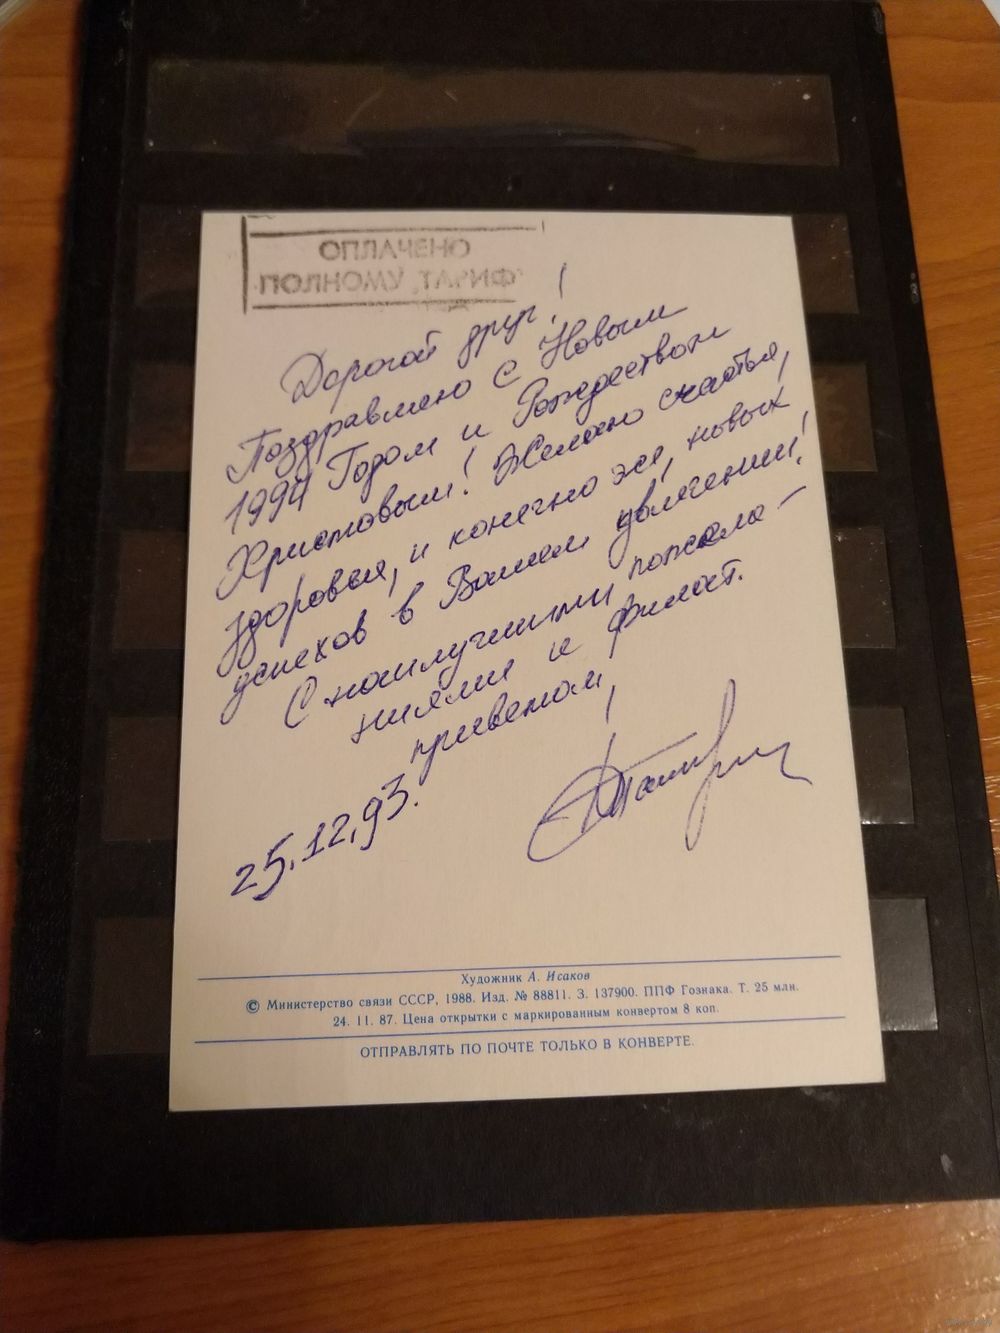 ОПЛАЧЕНО
ПОЛНОМУ ТАРИФ
Дорогой друг!
Поздравляю с Новым
1994 Годом и Рождеством
Христовым! Желаю счастья,
здоровья, и конечно же, новых
успехов в Вашем увлечении!
С наилучшими пожела-
ниями и филат.
приветом,
25.12.93.
Художник А. Исаков
© Министерство связи СССР, 1988. Изд. № 88811. З. 137900. ППФ Гознака. Т. 25 млн.
24. 11. 87. Цена открытки с маркированным конвертом 8 коп.
ОТПРАВЛЯТЬ ПО ПОЧТЕ ТОЛЬКО В КОНВЕРТЕ.